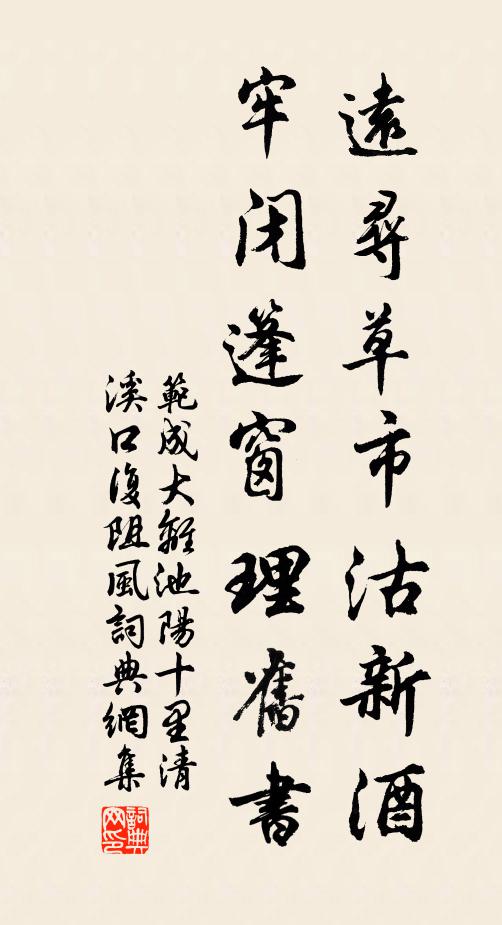 遠尋草市沽新酒
牢閉篷窗理舊書
範成大離池陽十里清
溪口復阻風詞典網集
詞典
网印